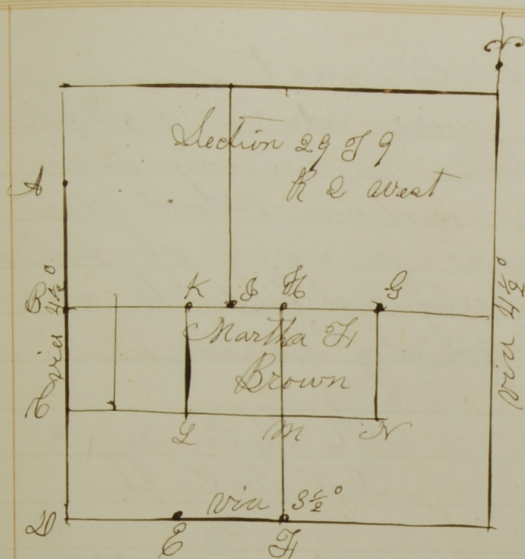 Section 29 T 9
R 2 west
A
B
via 4½°
C
D
K
J
H
G
Martha F
Brown
L
M
N
via 3½°
E
F
via 4½°